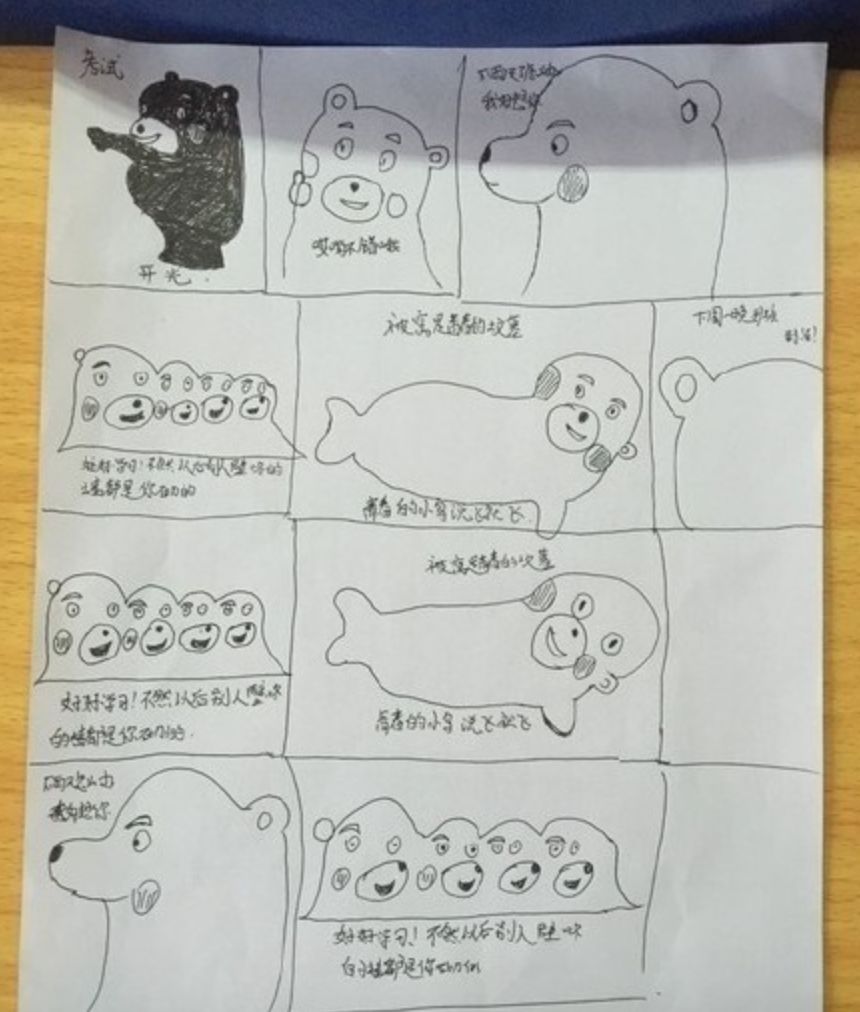 考试
开光.
哎哟不错哦
我好想你
被窝是青春的坟墓
下周一晚
好好学习!不然以后别人壁咚的
墙都是你砌的
青春的小鸟说飞就飞
被窝是青春的坟墓
好好学习!不然以后别人壁咚
的墙都是你砌的.
青春的小鸟说飞就飞
我好想你
好好学习!不然以后别人壁咚
的墙都是你砌的